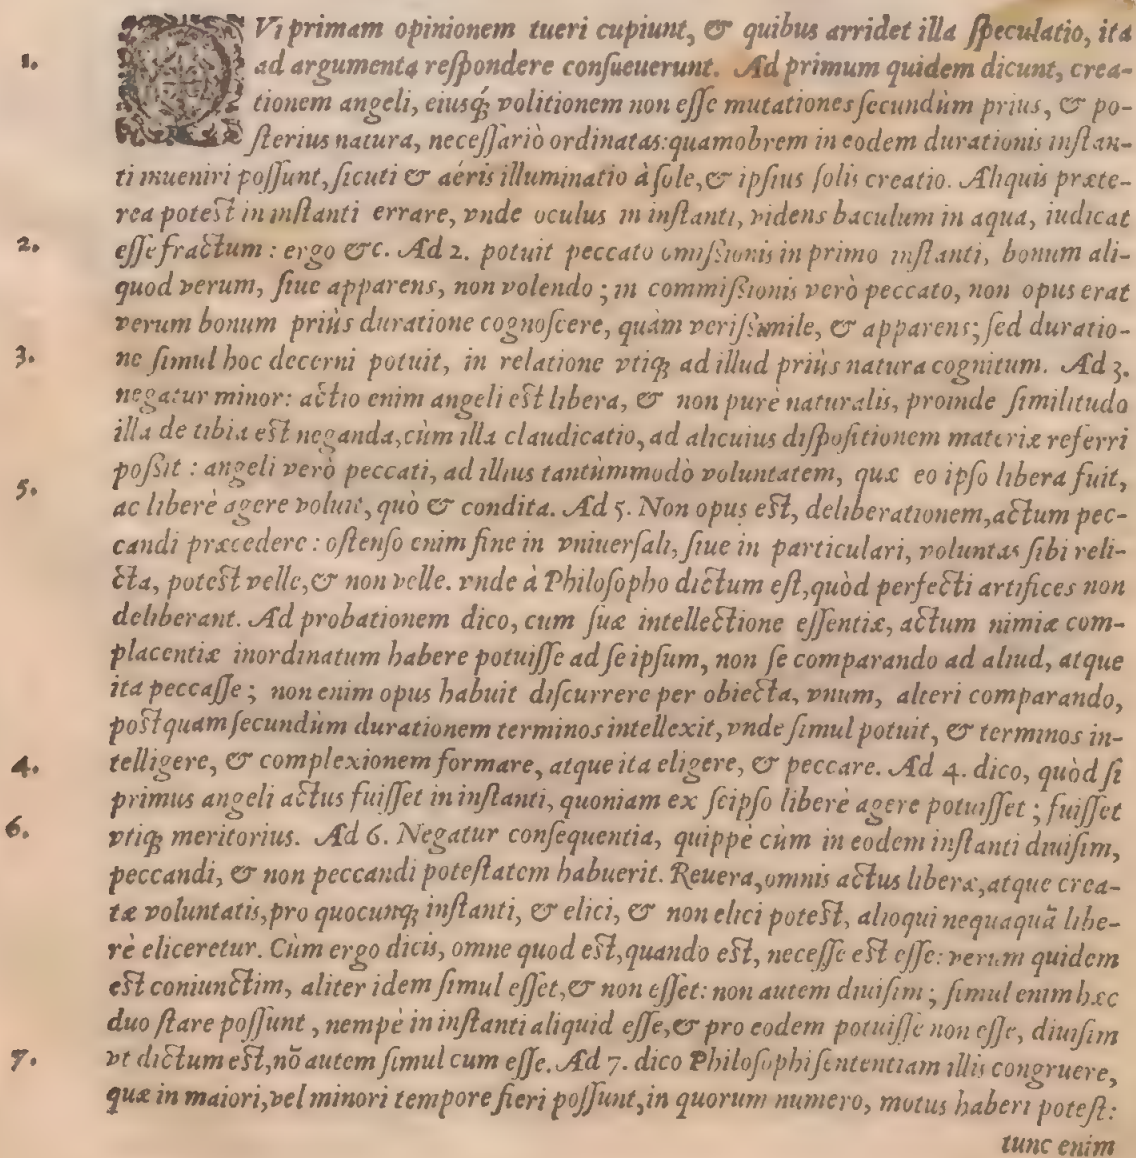 QVi primam opinionem tueri cupiunt, & quibus arridet illa ſpeculatio, ita
1. ad argumenta reſpondere conſueuerunt. Ad primum quidem dicunt, crea-
tionem angeli, eiusq́; volitionem non eſſe mutationes ſecundùm prius, & po-
ſterius natura, neceſſariò ordinatas: quamobrem in eodem durationis inſtan-
ti inueniri poſſunt, ſicuti & aéris illuminatio à ſole, & ipſius ſolis creatio. Aliquis præte-
rea poteſt in inſtanti errare, vnde oculus in inſtanti, videns baculum in aqua, iudicat
2. eſſe fractum: ergo &c. Ad 2. potuit peccato omiſsionis in primo inſtanti, bonum ali-
quod verum, ſiue apparens, non volendo; in commiſsionis verò peccato, non opus erat
verum bonum priùs duratione cognoſcere, quàm veriſimile, & apparens; ſed duratio-
3. ne ſimul hoc decerni potuit, in relatione vtiq; ad illud priùs natura cognitum. Ad 3.
negatur minor: actio enim angeli eſt libera, & non purè naturalis, proinde ſimilitudo
illa de tibia eſt neganda, cùm illa claudicatio, ad alicuius diſpoſitionem materiæ referri
poſsit: angeli verò peccati, ad illius tantùmmodò voluntatem, quæ eo ipſo libera fuit,
5. ac liberè agere voluit, quò & condita. Ad 5. Non opus eſt, deliberationem, actum pec-
candi præcedere: oſtenſo enim fine in vniuerſali, ſiue in particulari, voluntas ſibi reli-
cta, poteſt velle, & non velle. vnde à Philoſopho dictum eſt, quòd perfecti artifices non
deliberant. Ad probationem dico, cum ſuæ intellectione eſſentiæ, actum nimiæ com-
placentiæ inordinatum habere potuiſſe ad ſe ipſum, non ſe comparando ad aliud, atque
ita peccaſſe; non enim opus habuit diſcurrere per obiecta, vnum, alteri comparando,
poſtquam ſecundùm durationem terminos intellexit, vnde ſimul potuit, & terminos in-
4. telligere, & complexionem formare, atque ita eligere, & peccare. Ad 4. dico, quòd ſi
primus angeli actus fuiſſet in inſtanti, quoniam ex ſeipſo liberè agere potuiſſet; fuiſſet
6. vtiq; meritorius. Ad 6. Negatur conſequentia, quippè cùm in eodem inſtanti diuiſim,
peccandi, & non peccandi poteſtatem habuerit. Reuera, omnis actus liberæ, atque crea-
tæ voluntatis, pro quocunq; inſtanti, & elici, & non elici poteſt, alioqui nequaquã libe-
rè eliceretur. Cùm ergo dicis, omne quod eſt, quando eſt, neceſſe eſt eſſe: verum quidem
eſt coniunctim, aliter idem ſimul eſſet, & non eſſet: non autem diuiſim; ſimul enim hæc
duo ſtare poſſunt, nempè in inſtanti aliquid eſſe, & pro eodem potuiſſe non eſſe, diuiſim
7. vt dictum eſt, nõ autem ſimul cum eſſe. Ad 7. dico Philoſophi ſententiam illis congruere,
quæ in maiori, vel minori tempore fieri poſſunt, in quorum numero, motus haberi poteſt:
tunc enim